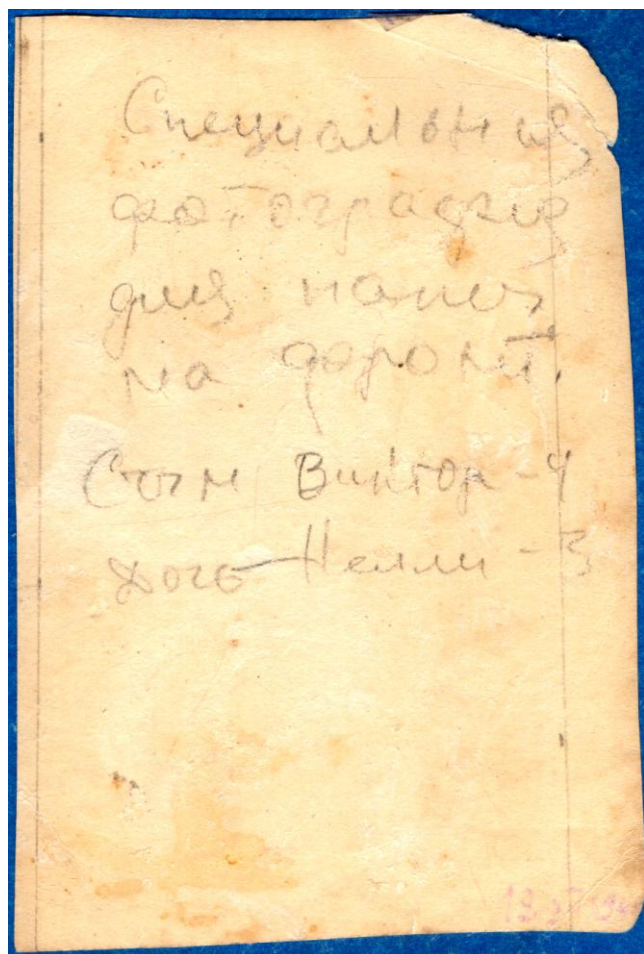 Специальная
фотография
для папы
на фронт.
Сын Виктор-4
дочь-Нелли-3